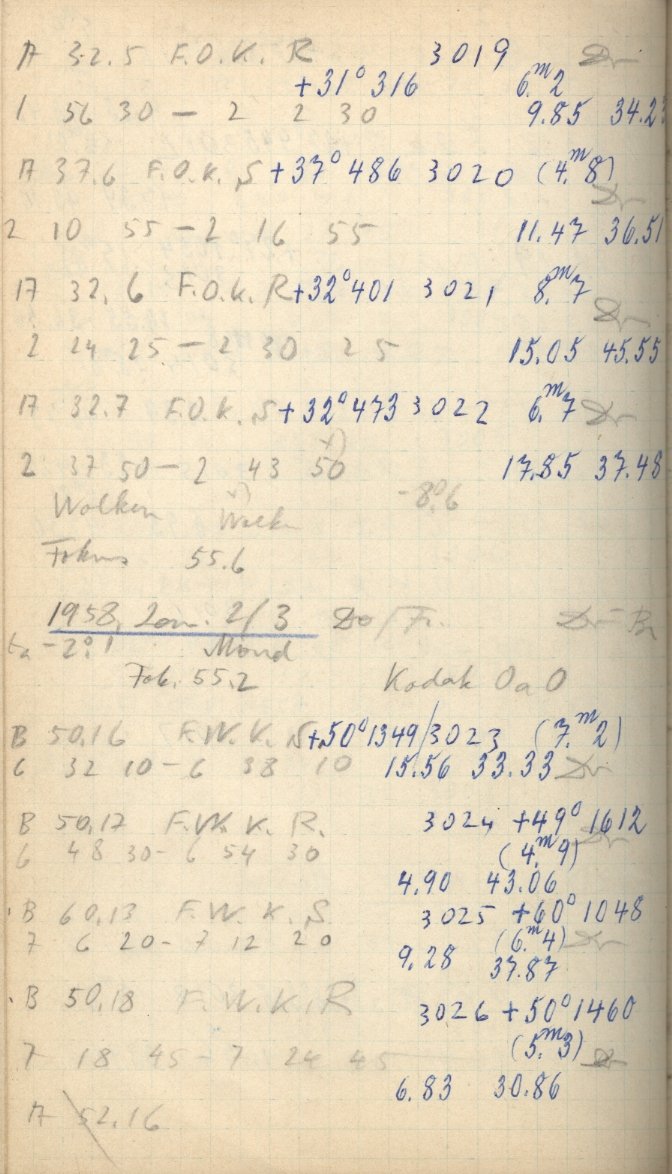 A 32.5 F.O.K. R 3019 Dr
+31° 316 6.m2
1 56 30 — 2 2 30 9.85 34.23
A 37.6 F.O.K. S +37° 486 3020 (4.m8)
Dr
2 10 55 — 2 16 55 11.47 36.51
A 32.6 F.O.K. R +32° 401 3021 8.m7
Dr
2 24 25 — 2 30 25 15.05 45.55
A 32.7 F.O.K. S +32° 473 3022 6.m7 Dr
2 37 50 — 2 43 50 +) 17.85 37.48
Wolken +) Wolken -8°.6
Fokus 55.6
1958, Jan. 2/3 Do/Fr. Dr - Bn
ta -2°.1 Mond
Fok. 55.2 Kodak OaO
B 50.16 F.W.K. S +50° 1349/3023 (7.m2)
6 32 10 - 6 38 10 15.56 33.33 Dr
B 50.17 F.W.K. R. 3024 +49° 1612
6 48 30 - 6 54 30 (4.m9) Dr
4.90 43.06
B 60.13 F.W.K. S. 3025 +60° 1048
7 6 20 - 7 12 20 (6.m4) Dr
9.28 37.87
B 50.18 F.W.K. R 3026 +50° 1460
7 18 45 - 7 24 45 (5.m3) Dr
6.83 30.86
A 52.16